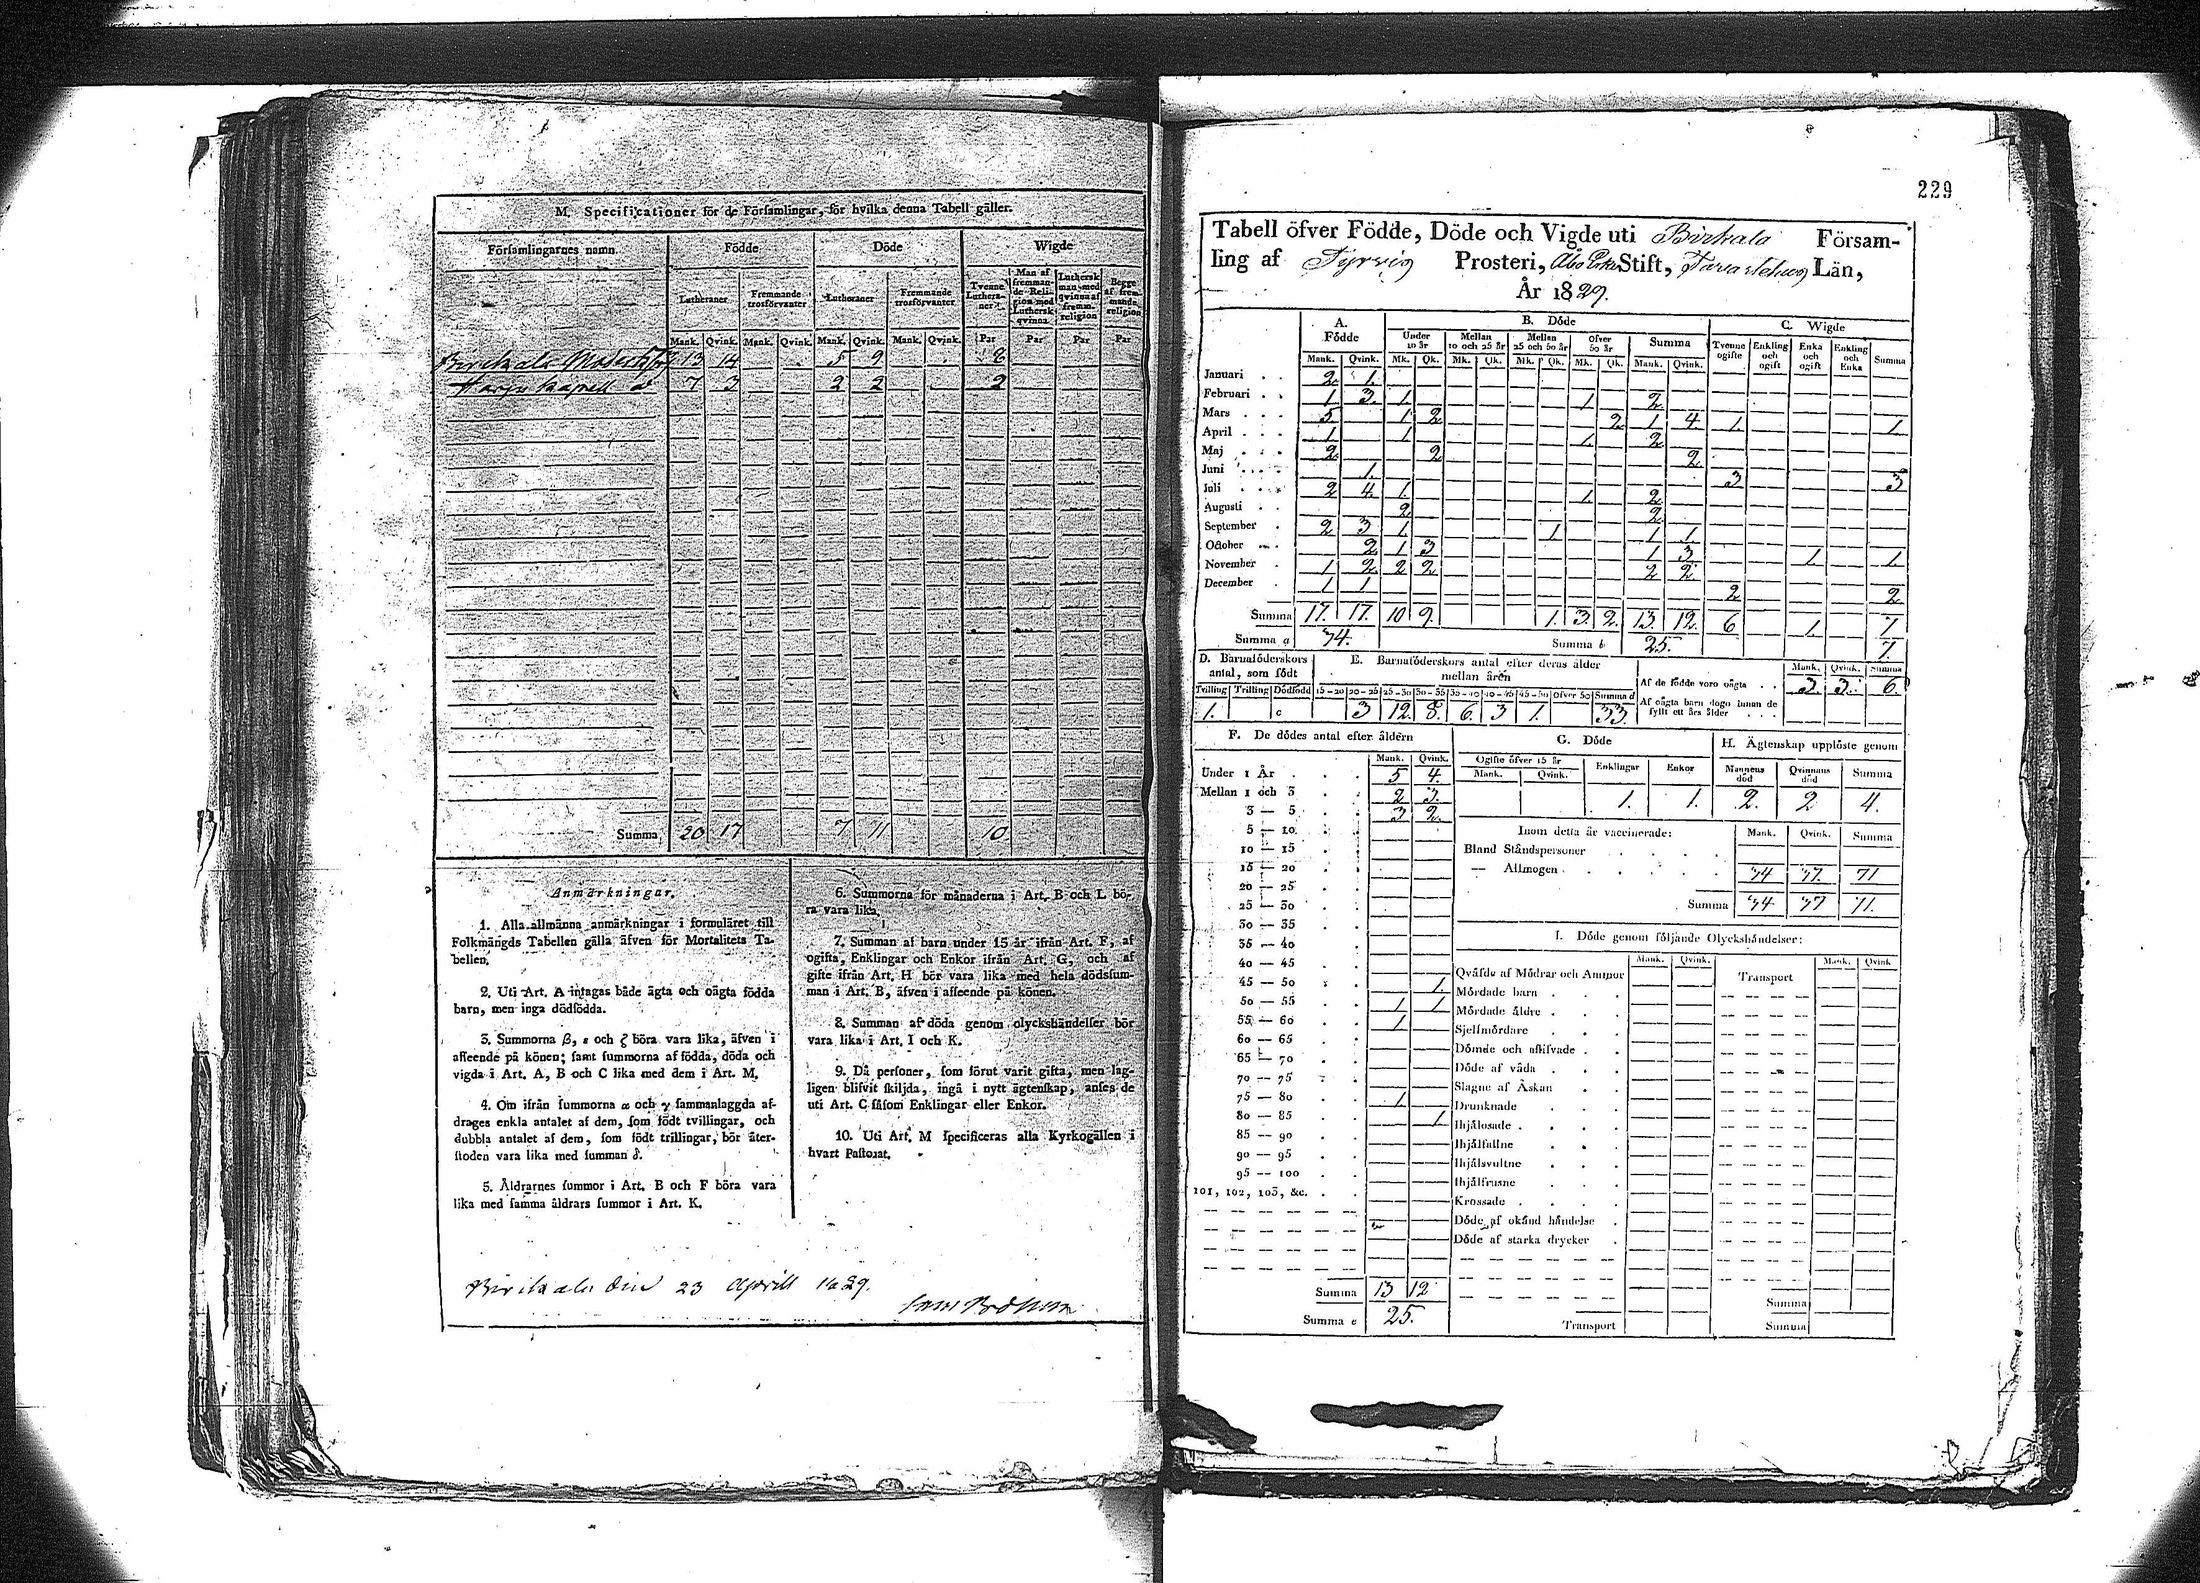 M. Specificationer för de Församlingar, för hvilka denna Tabell gäller.
Församlingarnes namn Födde Döde Wigde
Lutheraner Fremmande trosförvanter Lutheraner Fremmande trosförvanter Tvenne Lutheraner Man af fremmande Religion med Luthersk qvinna Luthersk man med qvinna af fremm. religion Begge af fremmande religion
Mank. Qvink. Mank. Qvink. Mank. Qvink. Mank. Qvink. Par Par Par Par
Birckala 13 14 5 9 8
Harju Kapell 7 3 2 2 2
Summa 20 17 7 11 10
Anmärkningar.
1. Alla allmänna anmärkningar i formuläret till
Folkmängds Tabellen gälla äfven för Mortalitets Ta-
bellen.
2. Uti Art. A intagas både ägta och oägta födda
barn, men inga dödfödda.
3. Summorna β, ε och ζ böra vara lika, äfven i
afseende på könen; samt summorna af födda, döda och
vigda i Art. A, B och C lika med dem i Art. M.
4. Om ifrån summorna α och γ sammanlaggda af-
drages enkla antalet af dem, som födt tvillingar, och
dubbla antalet af dem, som födt trillingar, bör åter-
stoden vara lika med summan δ.
5. Åldrarnes summor i Art. B och F böra vara
lika med samma åldrars summor i Art. K.
6. Summorna för månaderna i Art. B och L bö-
ra vara lika.
7. Summan af barn under 15 år ifrån Art. F, af
ogifta, Enklingar och Enkor ifrån Art. G, och af
gifte ifrån Art. H bör vara lika med hela dödssum-
man i Art. B, äfven i afseende på könen.
8. Summan af döda genom olyckshändelser bör
vara lika i Art. I och K.
9. Då personer, som förut varit gifta, men lag-
ligen blifvit skiljda, ingå i nytt ägtenskap, anses de
uti Art. C såsom Enklingar eller Enkor.
10. Uti Art. M specificeras alla Kyrkogällen i
hvart Pastorat.
Birckala den 23 Aprill 1829.
229
Tabell öfver Födde, Döde och Vigde uti Birkala Försam-
ling af Tyrvis Prosteri, Åbo Stift, Tavastehus Län,
År 1829.
A. Födde B. Döde C. Wigde
Under 10 år Mellan 10 och 25 år Mellan 25 och 50 år Öfver 50 år Summa Tvenne ogifte Enkling och ogift Enka och ogift Enkling och Enka Summa
Mank. Qvink. Mk. Qk. Mk. Qk. Mk. Qk. Mk. Qk. Mank. Qvink.
Januari 2. 1.
Februari 1 3. 1. 1. 2.
Mars 5. 1 2 2 1 4 1. 1.
April 1 1 1. 2
Maj 2 2 2
Juni 1. 3 3
Juli 2 4. 1. 1. 2
Augusti 2 2
September 2 3 1. 1. 1 1
October 2 1 3 1 3 1. 1.
November 1 2 2 2 2 2
December 1 1 2 2
Summa 17. 17. 10 9. 1. 3. 2. 13. 12. 6 1. 7
Summa a 34. Summa b 25. 7.
D. Barnaföderskors antal, som födt
E. Barnaföderskors antal efter deras ålder mellan åren
Mank. Qvink. Summa
Af de födde voro oägta 3 3. 6.
Af oägta barn dogo innan de fyllt ett års ålder
Tvilling Trilling Dödfödd 15-20 20-25 25-30 30-35 35-40 40-45 45-50 öfver 50 Summa d
1. c 3 12. 8. 6. 3 1. 33.
F. De dödes antal efter åldern
Mank. Qvink.
Under 1 År 5 4.
Mellan 1 och 3 2 3.
3 — 5 3 2.
5 — 10
10 — 15
15 — 20
20 — 25
25 — 30
30 — 35
35 — 40
40 — 45
45 — 50 1.
50 — 55 1 1
55 — 60 1
60 — 65
65 — 70
70 — 75
75 — 80 1.
80 — 85 1.
85 — 90
90 — 95
95 — 100
101, 102, 103, &c.
Summa 13 12
Summa e 25.
G. Döde
Ogifte öfver 15 år Enklingar Enkor
Mank. Qvink.
1. 1.
H. Ägtenskap upplöste genom
Mannens död Qvinnans död Summa
2. 2 4.
Inom detta år vaccinerade: Mank. Qvink. Summa
Bland Ståndspersoner
— Allmogen 34 37. 71
Summa 34 37 71.
I. Döde genom följande Olyckshändelser:
Mank. Qvink. Transport Mank. Qvink
Qväfde af Mödrar och Ammor
Mördade barn
Mördade äldre
Sjelfmördare
Dömde och aflifvade
Döde af våda
Slagne af Åskan
Drunknade
Ihjälosade
Ihjälfallne
Ihjälsvultne
Ihjälfrusne
Krossade
Döde af okänd händelse
Döde af starka drycker
Summa
Transport Summa